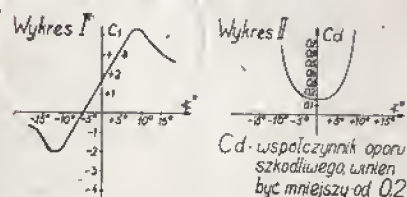 Wykres I
C₁
+3
+2
-15° -10° +5° 10° 15°
-1
-2
-3
-4
Wykres II
Cd
0.1
-15° -10° +5° +10° +15°
Cd - współczynnik oporu
szkodliwego, winien
być mniejszy od 0,2